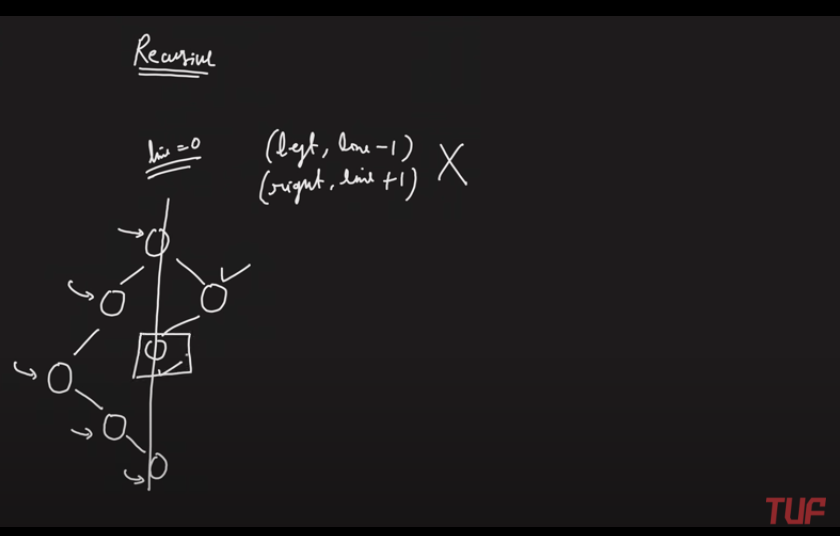 Recursive
line = 0
(left, line - 1)
(right, line + 1)
X
TUF